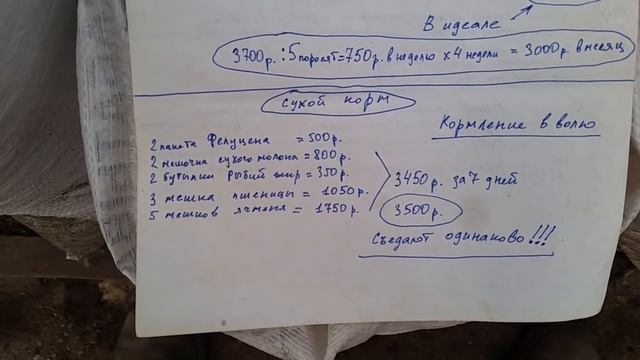 В идеале
3700р. : 5 поросят = 750р. в неделю х 4 недели = 3000р. в месяц
сухой корм
Кормление в волю
2 пакета Фелуцена = 500р.
2 мешочка сухого молока = 800р.
2 бутылки рыбий жир = 350р.
3 мешка пшеницы = 1050р.
5 мешков ячменя = 1750р.
3450р. за 7 дней
3500р.
Съедают одинаково!!!